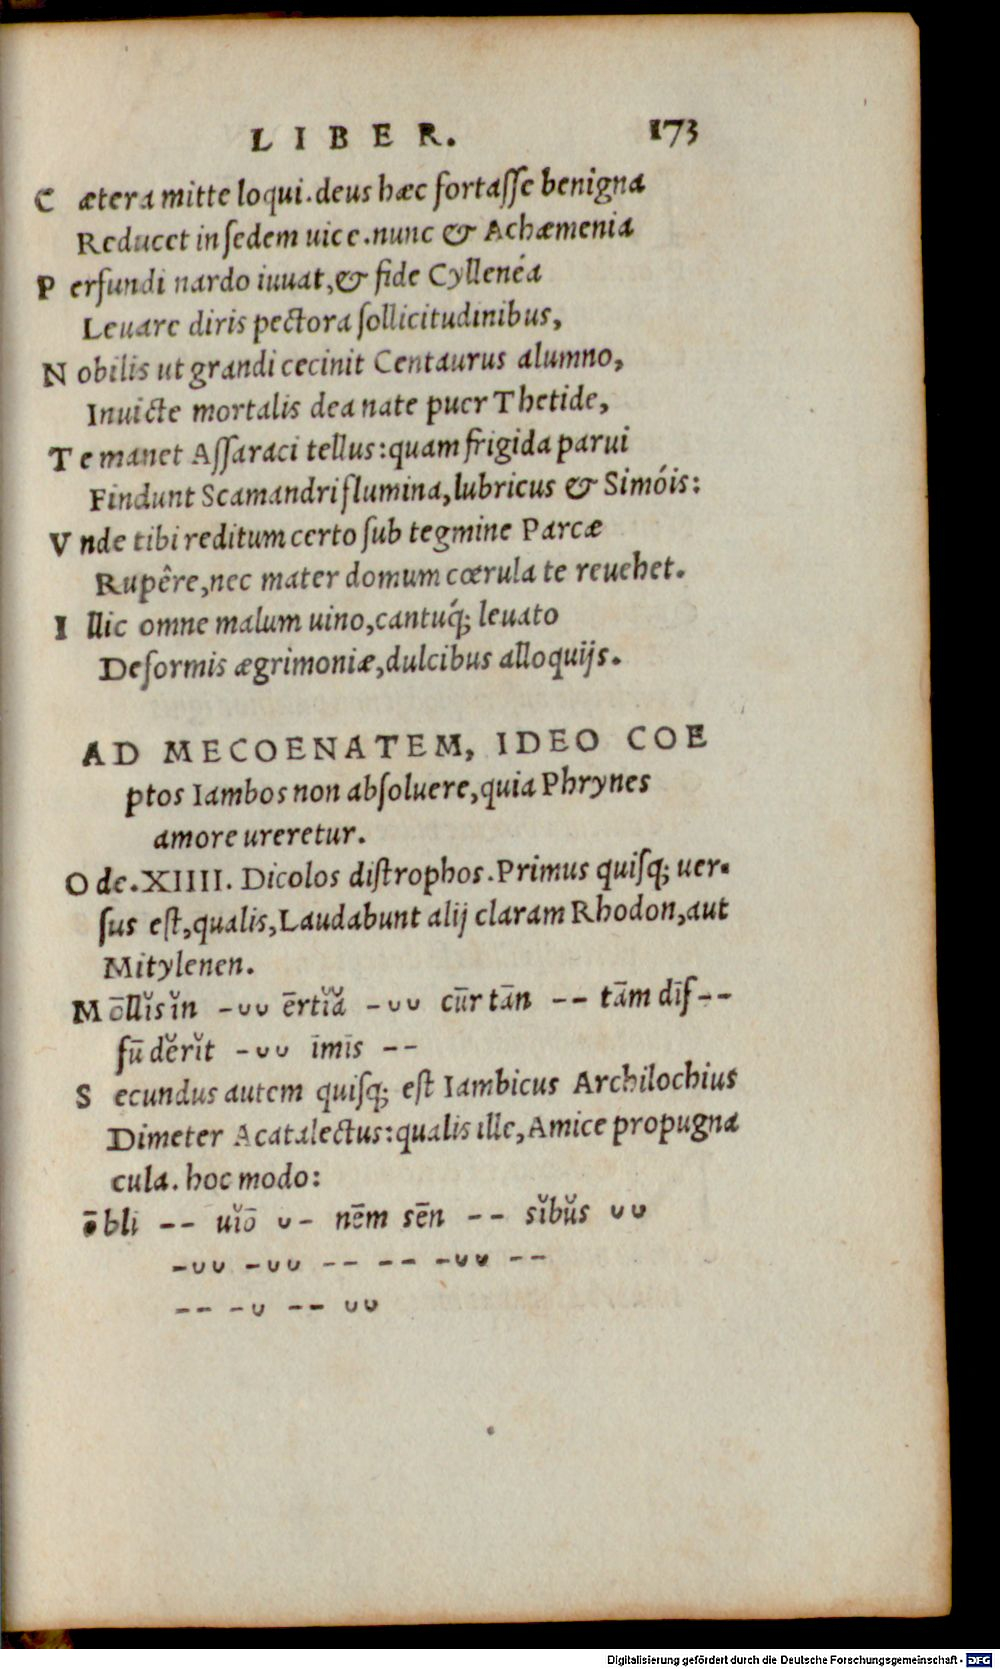 LIBER. 173
C ætera mitte loqui. deus hæc fortaſſe benigna
Reducet in ſedem uice. nunc & Achæmenia
P erfundi nardo iuuat, & fide Cyllenéa
Leuare diris pectora ſollicitudinibus,
N obilis ut grandi cecinit Centaurus alumno,
Inuicte mortalis dea nate puer Thetide,
T e manet Aſſaraci tellus: quam frigida parui
Findunt Scamandri flumina, lubricus & Simóis:
V nde tibi reditum certo ſub tegmine Parcæ
Rupêre, nec mater domum cœrula te reuehet.
I llic omne malum uino, cantuq́; leuato
Deformis ægrimoniæ, dulcibus alloquijs.
AD MECOENATEM, IDEO COE
ptos Iambos non abſoluere, quia Phrynes
amore ureretur.
O de. XIIII. Dicolos diſtrophos. Primus quiſq; uer-
ſus eſt, qualis, Laudabunt alij claram Rhodon, aut
Mitylenen.
M ōllĭs ĭn -υυ ērtĭă -υυ cūr tān -- tām dīſ--
fū dĕrĭt -υυ īmīs --
S ecundus autem quiſq; eſt Iambicus Archilochius
Dimeter Acatalectus: qualis ille, Amice propugna
cula. hoc modo:
ōbli -- uĭō υ- nēm sēn -- sĭbŭs υυ
-υυ -υυ -- -- -υυ --
-- -υ -- υυ
Digitalisierung gefördert durch die Deutsche Forschungsgemeinschaft - DFG